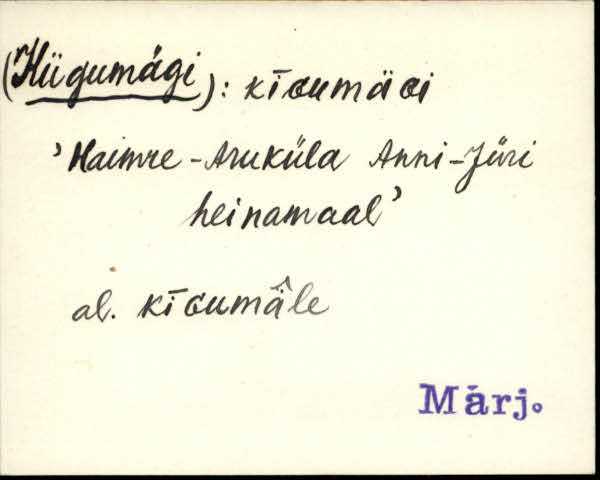 (Kiigumägi): kīɢumäɢi
’Haimre-Aruküla Anni-Jüri
heinamaal’
al. kīɢumä̂le
Märj.